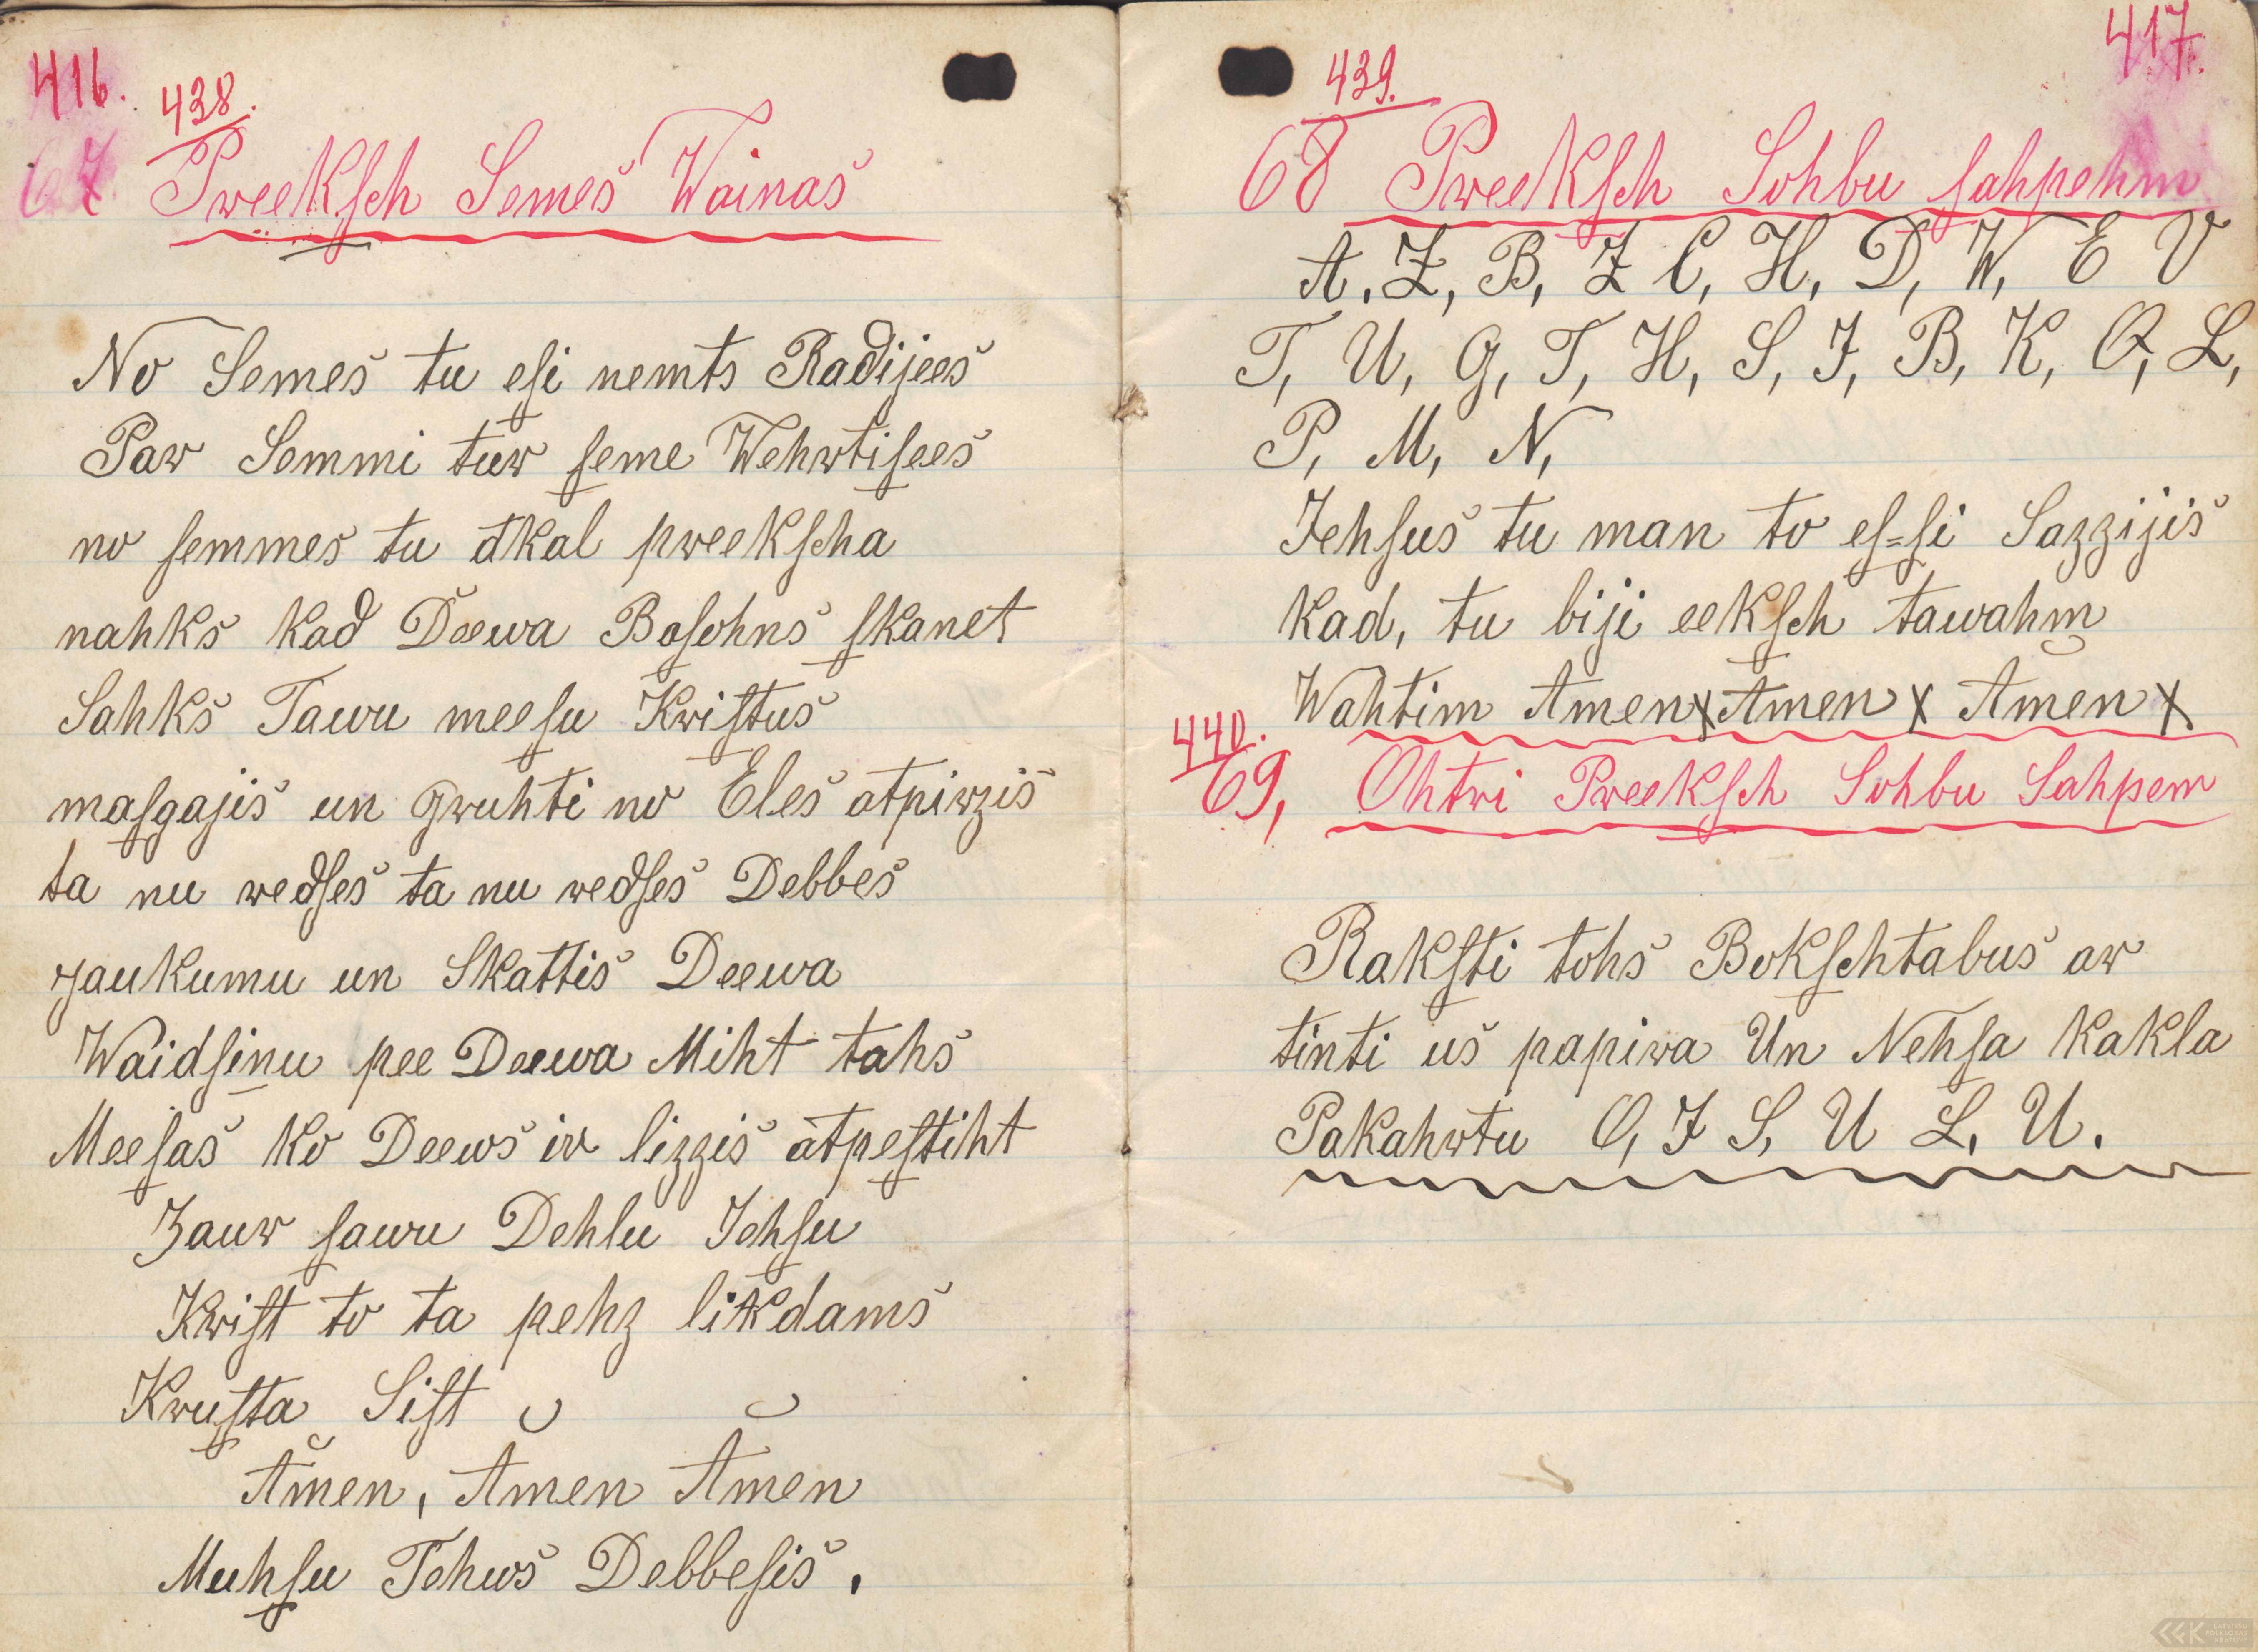 416.
438.
67 Preeksch Semes Wainas
No Semes tu esi nemts Radijees
Par Semmi tur seme Wehrtisees
no semmes tu atkal preekscha
nahks kad Deewa Basohns skanet
Sahks Tawu meesu Kristus
masgajis un gruhti no Eles atpirzis
ta nu redses ta nu redses Debbes
jaukumu un Skattis Deewa
Waidsinu pee Deewa Miht tahs
Meesas ko Deews ir lizzis atpestiht
Zaur sawu Dehlu Jehsu
Krist to ta pehz likdams
Krusta Sist
Amen, Amen Amen
Muhsu Tehws Debbesis.
417.
439.
68 Preeksch Sohbu sahpehm
A, Z, B, Z C, H, D, W, E V
T, U, G, T, H, S, J, B, K, Q, L,
P, M, N,
Jehsus tu man to es=si Sazzijis
Kad, tu biji eeksch tawahm
Wahtim Amen x Amen x Amen x
440.
69, Ohtri Preeksch Sohbu Sahpem
Raksti tohs Bokschtabus ar
tinti us papira Un Nehsa Kakla
Pakahrtu O, J S, U L, U.